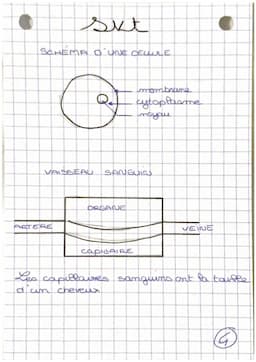 SVT
SCHÉMA D'UNE CELULE
membrane
cytoplasme
noyau
VAISSEAU SANGUIN
ORGANE
ARTERE
VEINE
CAPILAIRE
Les capillaires sanguins ont la taille
d'un cheveux